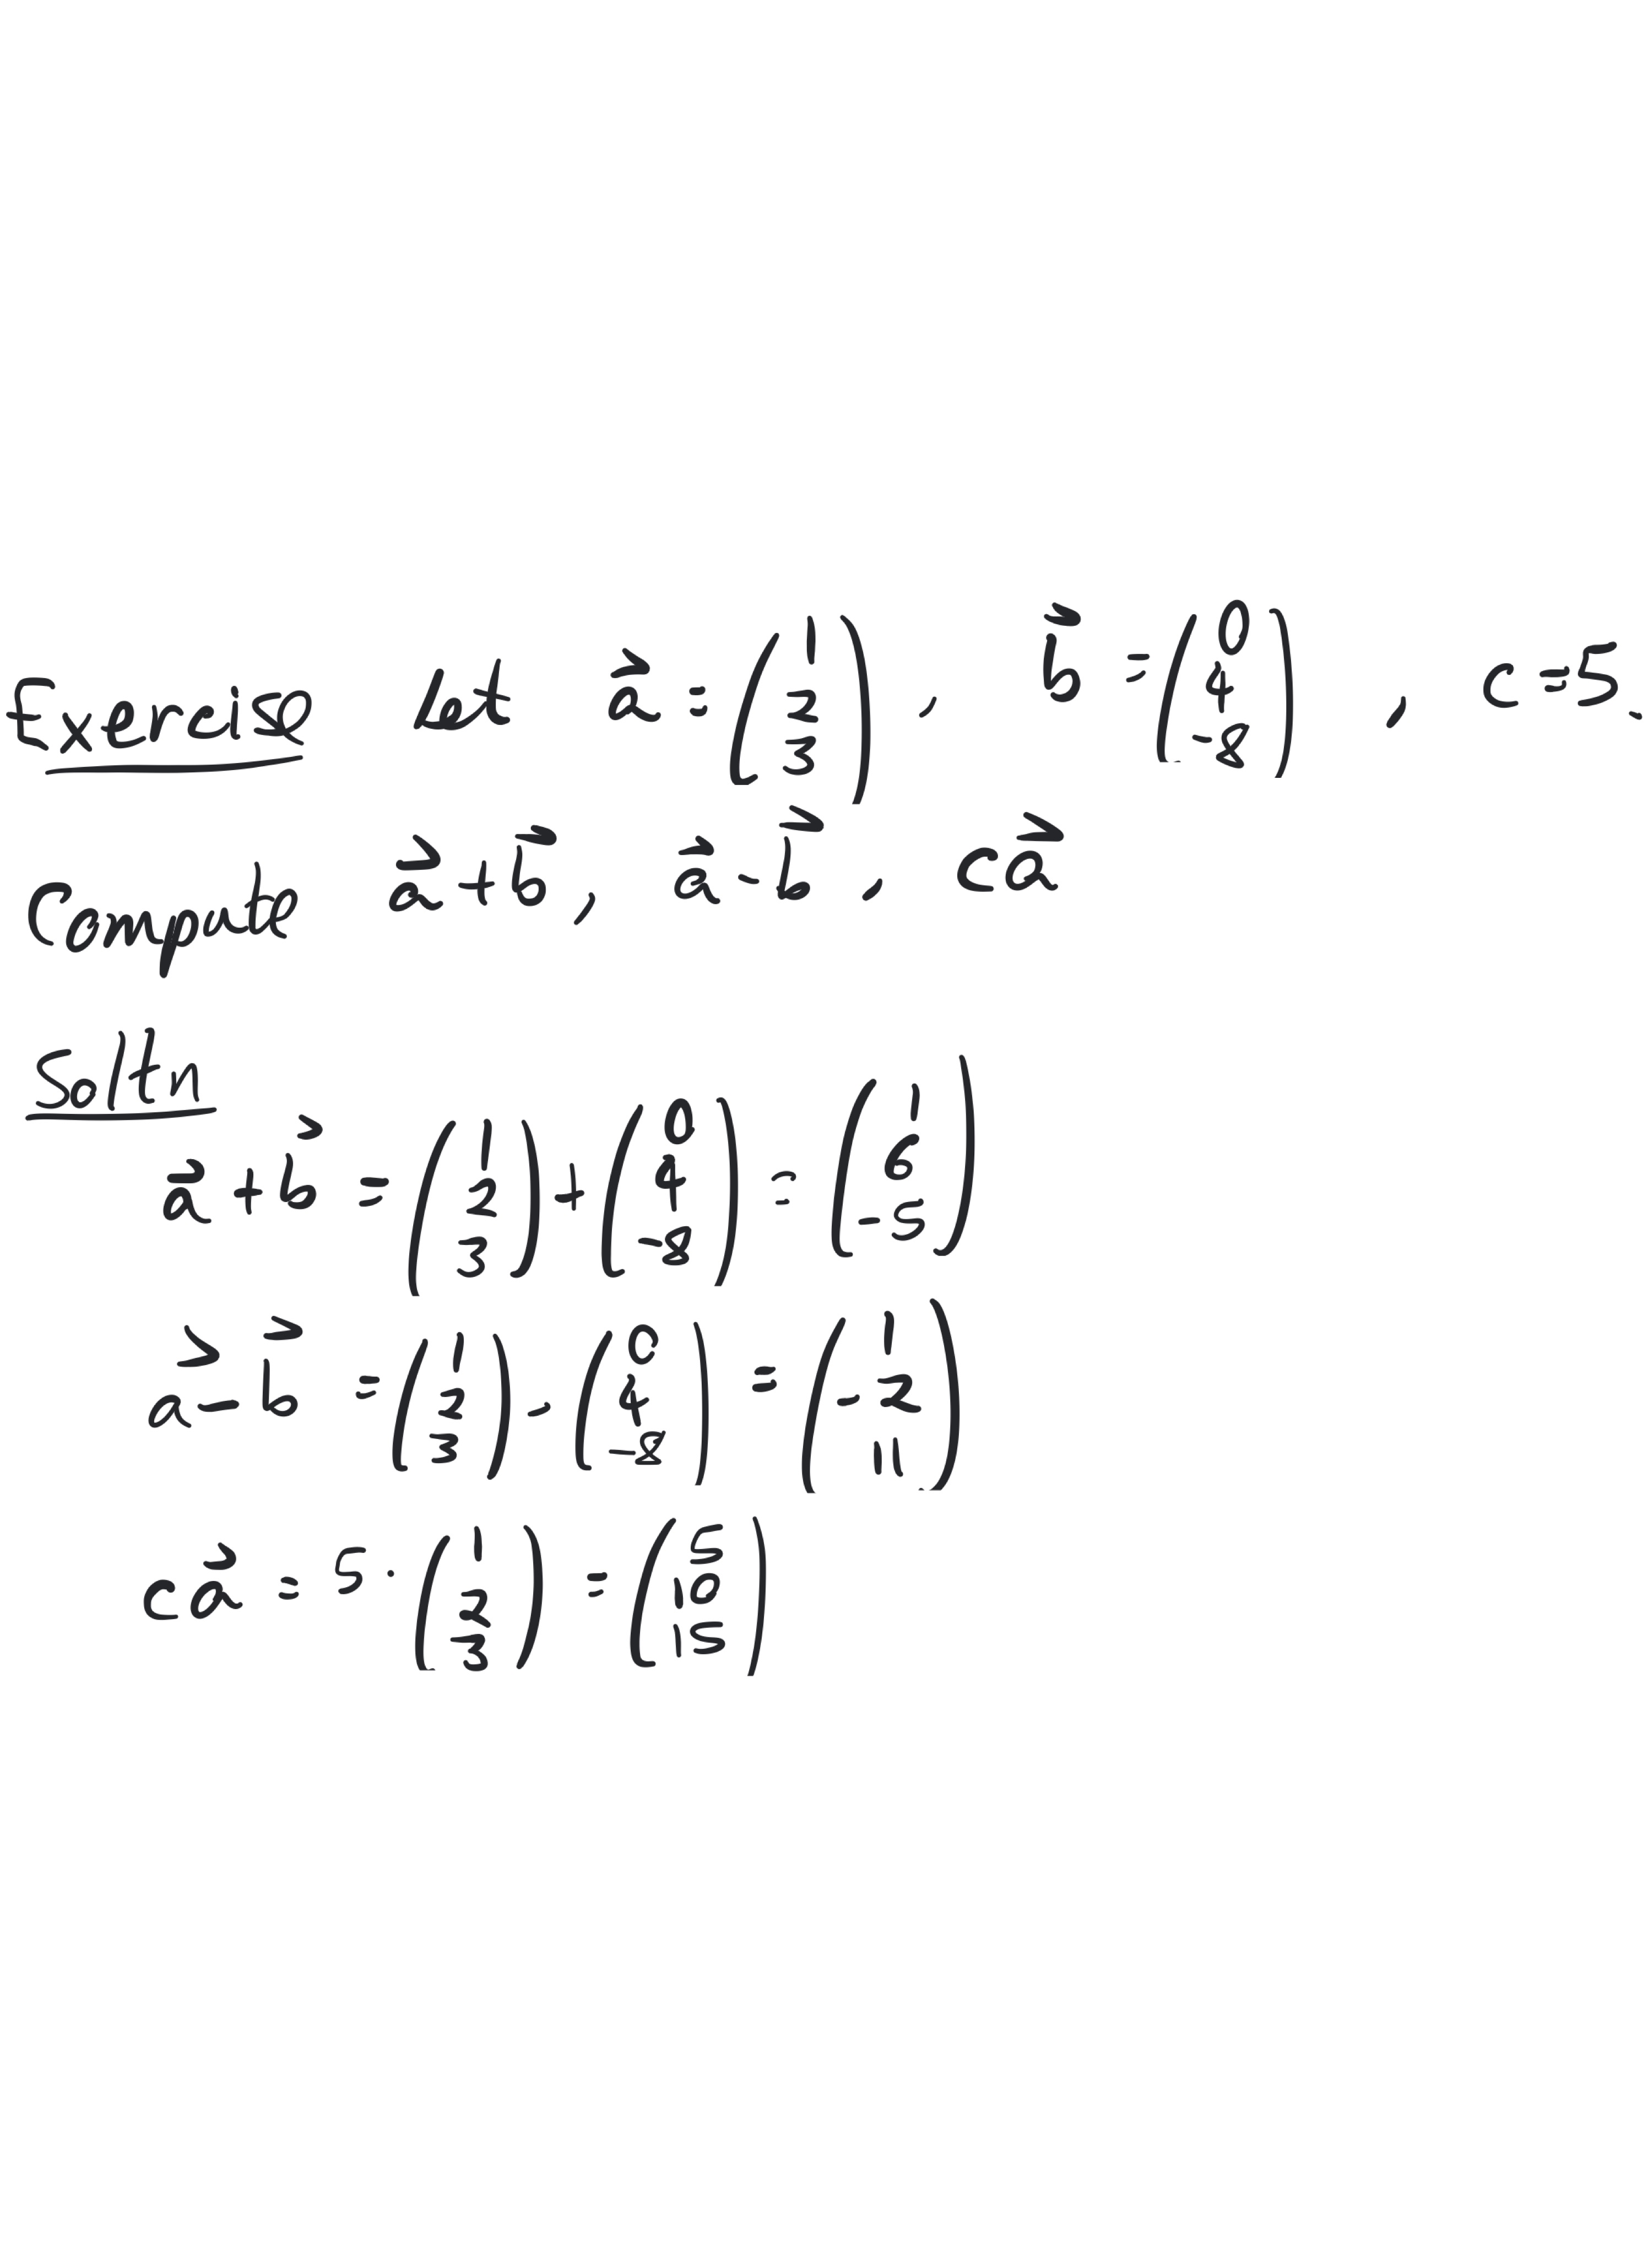 Exercise Let a⃗ = (1 2 3), b⃗ = (0 4 -8), c = 5.
Compute a⃗ + b⃗, a⃗ - b⃗, ca⃗
Soltn
a⃗ + b⃗ = (1 2 3) + (0 4 -8) = (1 6 -5)
a⃗ - b⃗ = (1 2 3) - (0 4 -8) = (1 -2 11)
ca⃗ = 5 · (1 2 3) = (5 10 15)